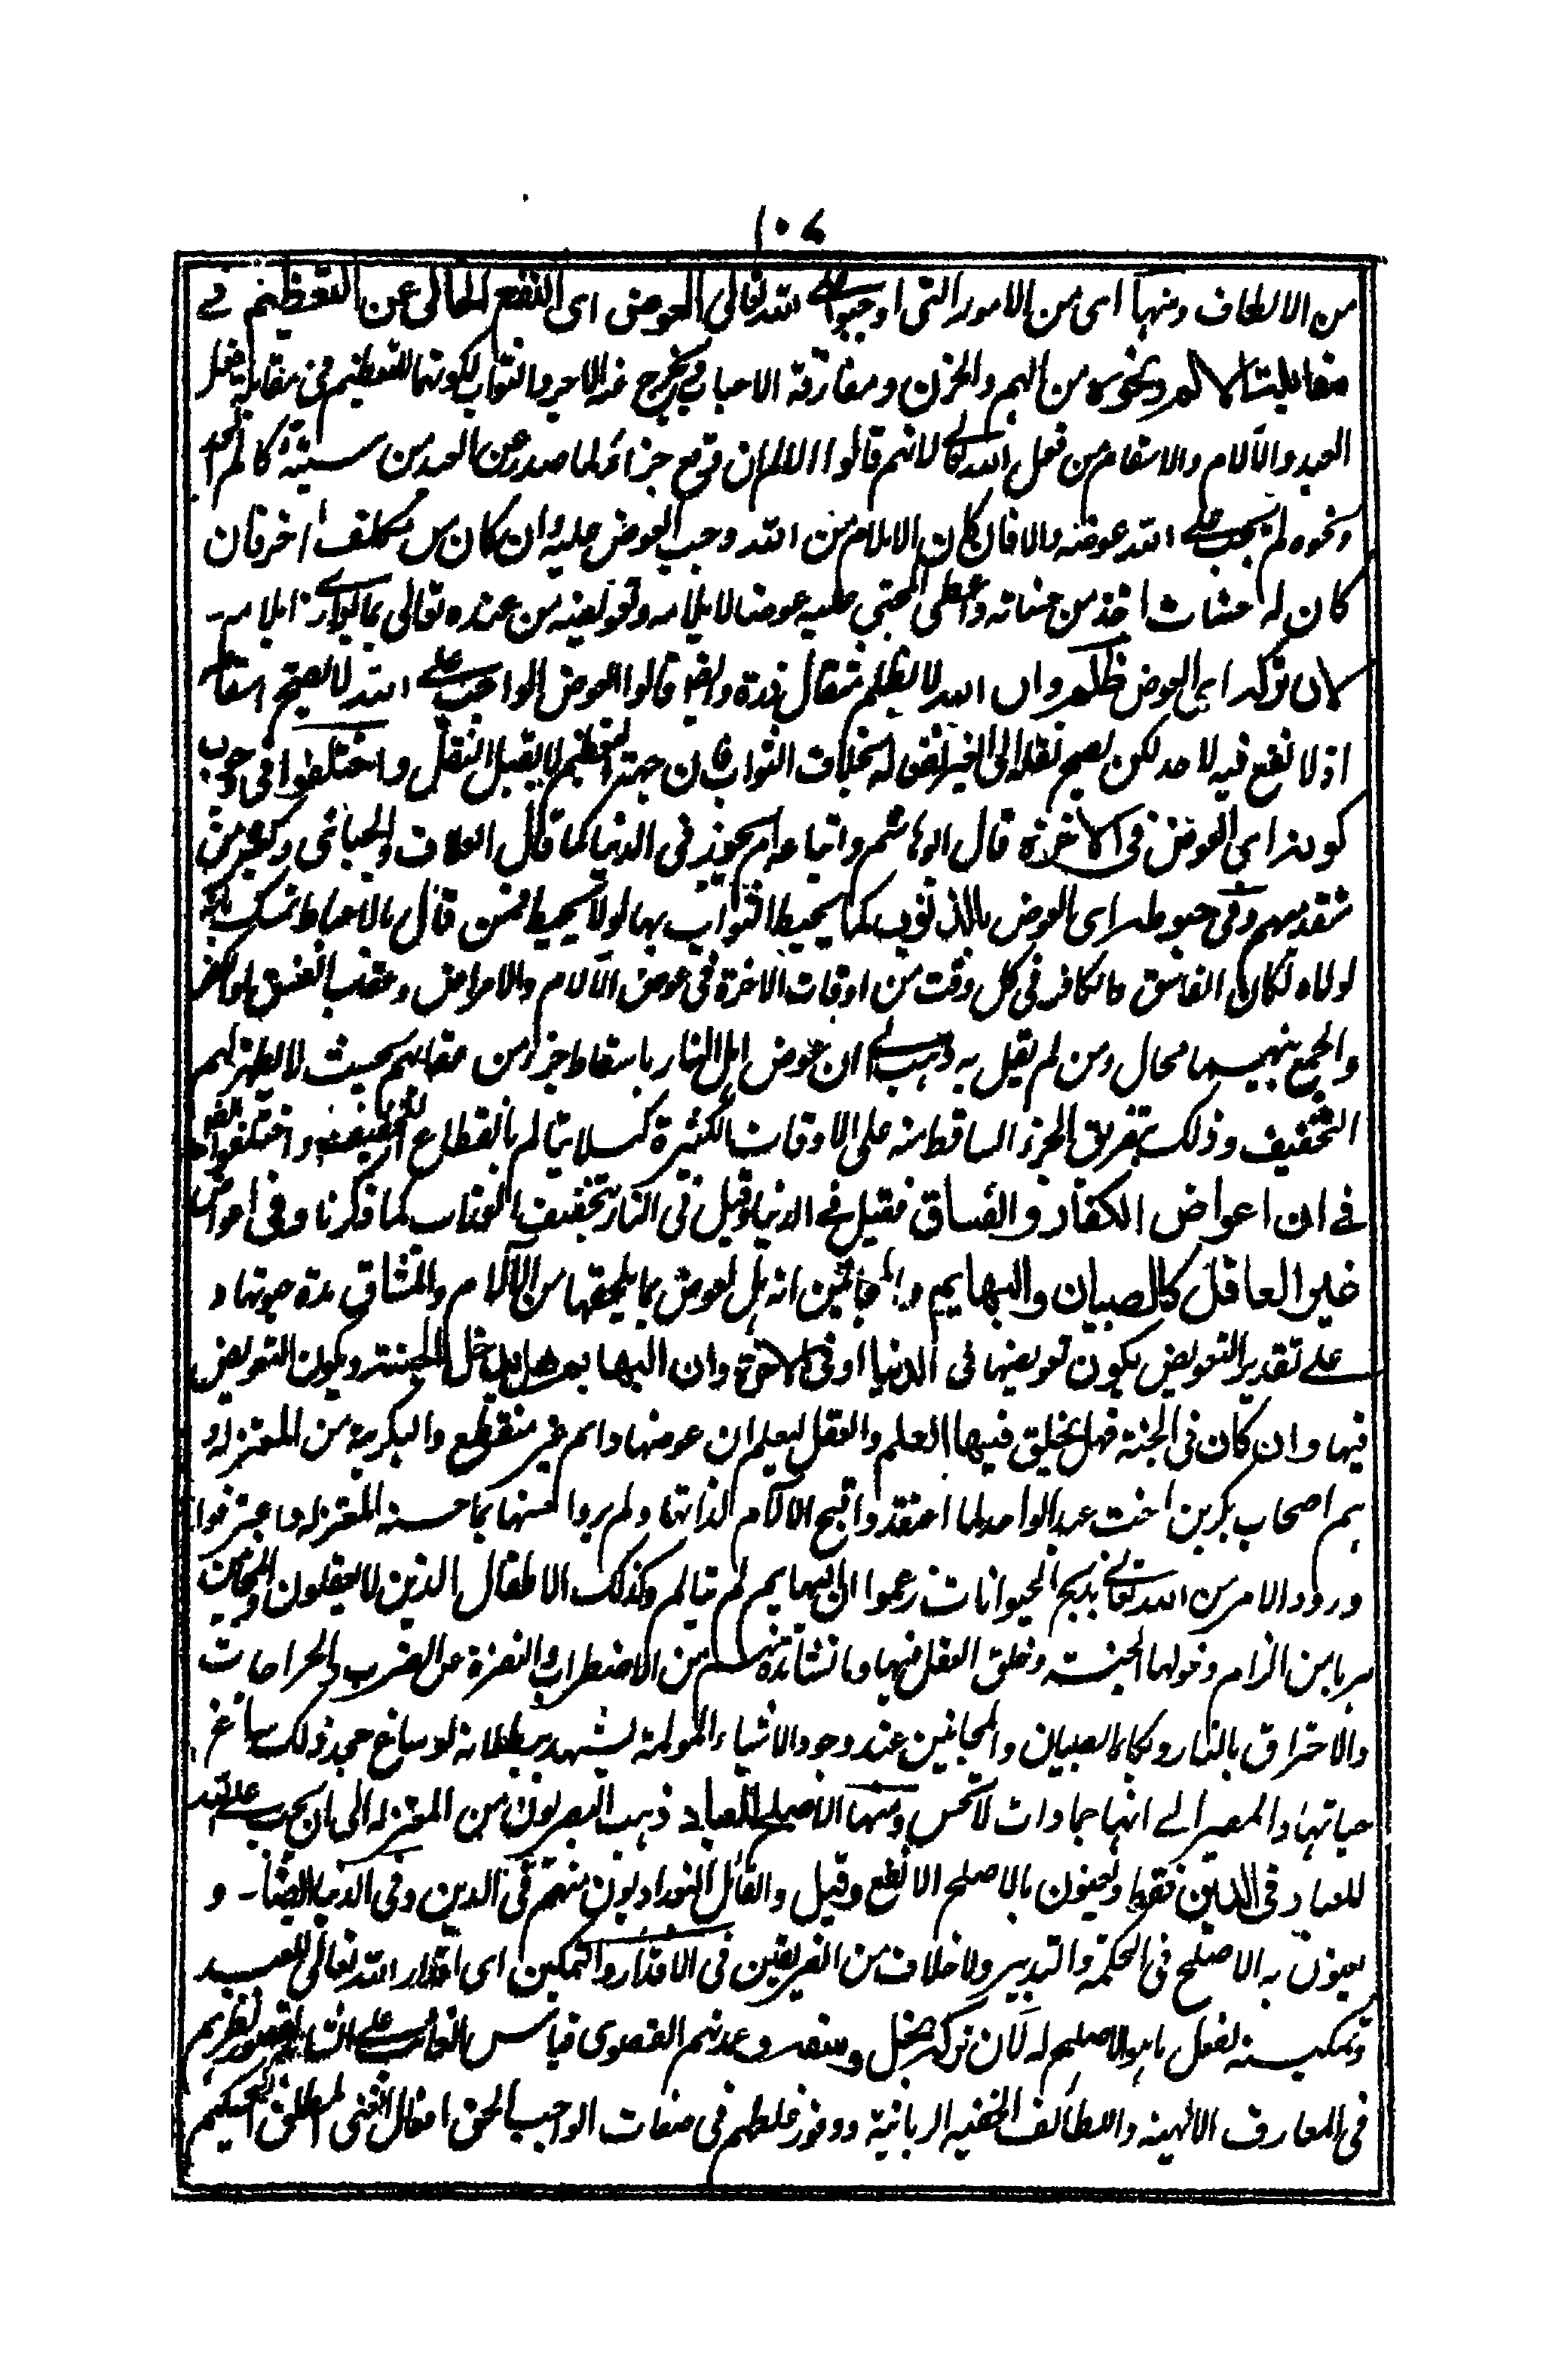 ١٠٤
من الالطاف ومنها اى من الامور التى اوجبوا على الله تعالى العوض اى النفع الخالى عن التعظيم فى
مقابلة الالم ونحوه من الهم والحزن ومفارقة الاحباب فيخرج عنه الاجر والثواب لكونهما للتعظيم فى مقابلة فعل
العبد والآلام والاسقام من فعل الله تعالى لانهم قالوا الالم ان وقع جزاء لما صدر عن العبد من سيئة كالم الحد
ونحوه لم يجب على الله عوضه والا فان كان الايلام من الله وجب العوض عليه وان كان من مكلف اخر فان
كان له حسنات اخذ من حسناته واعطى المجنى عليه عوضا لايلامه وتعويضه من عنده تعالى بما يوازى ايلامه
لان تركه اى العوض ظلم وان الله لا يظلم مثقال ذرة وايضا قالوا العوض الواجب على الله لا يصح اسقاطه
اذ لا نفع فيه لاحد لكن يصح نقله الى الغير لنفع له بخلاف الثواب فان جهة التعظيم لا يقبل النقل واختلفوا فى وجوب
كونه اى العوض فى الاخرة قال ابو هاشم واتباعه لم يجوز فى الدنيا كما قال العلاف والجبائى وكثير من
متقدميهم وفى حبوطه اى العوض بالذنوب كما يحبط الثواب بها او لا يحبط فمن قال بالاحباط تمسك بانه
لولاه لكان الفاسق والكافر فى كل وقت من اوقات الاخرة فى عوض الآلام والامراض وعقاب الفسق والكفر
والجمع بينهما محال ومن لم يقل به ذهب الى ان عوض اهل النار باسقاط جزء من عقابهم بحيث لا يظهر لهم
التخفيف وذلك بتفريق الجزء الساقط منه على الاوقات الكثيرة كيلا يتالم بانقطاع التخفيف واختلفوا ايضا
فى ان اعواض الكفار والفساق فقيل فى الدنيا وقيل فى النار بتخفيف العذاب كما ذكرنا وفى اعواض
غير العاقل كالصبيان والبهايم والمجانين انه هل يعوض بما يلحقها من الآلام والمشاق مدة حيوتها و
على تقدير التعويض يكون تعويضها فى الدنيا او فى الاخرة وان البهايم هل يدخل الجنة ويكون التعويض
فيها وان كان فى الجنة فهل يخلق فيها العلم والعقل ليعلم ان عوضها دائم غير منقطع والبكرية من المعتزله و
هم اصحاب بكر بن اخت عبد الواحد لما اعتقدوا قبح الآلام لذاتها ولم يروا حسنها بما حسنه المعتزله واعترفوا
ورود الامر من الله تعالى بذبح الحيوانات زعموا ان البهايم لم تتالم وكذلك الاطفال الذين لا يعقلون والمجانين
هربا من الزام دخولها الجنة وخلق العقل فيها وما نشاهده منهم من الاضطراب والنفرة عن الضرب والجراحات
والاحتراق بالنار وبكاء الصبيان والمجانين عند وجود الاشياء المولمة يشهد ببطلانه لو ساغ جحد ذلك ساغ
حياتها والمصير الى انها جمادات لا تحس ومنها الاصلح للعباد ذهب البصريون من المعتزله الى ان يجب على الله
للعباد فى الدين فقط ويعنون بالاصلح الانفع وقيل والقائل البغداديون منهم فى الدين وفى الدنيا ايضا و
يعنون به الاصلح فى الحكمة والتدبير ولا خلاف من الفريقين فى الاقدار والتمكين اى اقدار الله تعالى للعبيد
وتمكينه لفعل ما هو الاصلح له لان تركه بخل وسفه وعمدتهم القصوى قياس الغائب على الشاهد لقصور نظرهم
فى المعارف الالهية واللطائف الخفيه الربانية ووفور غلطهم فى صفات الواجب الحق افعال الغنى المطلق الحكيم